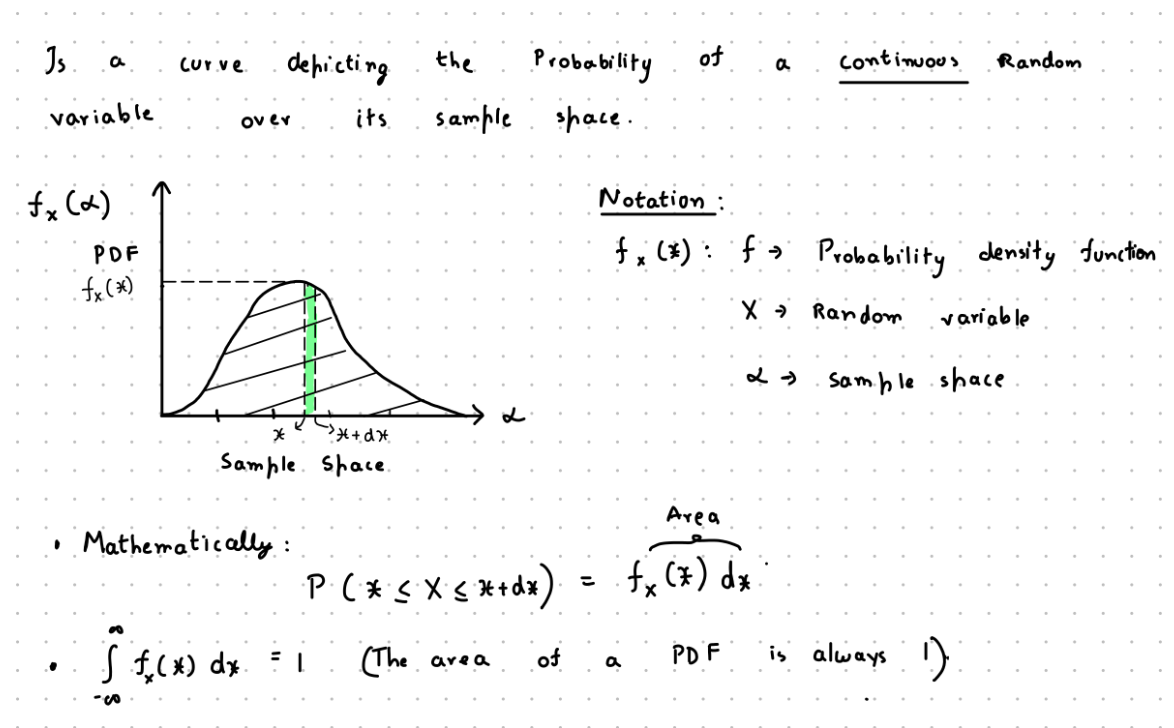 Is a curve depicting the Probability of a continuous Random
variable over its sample space.
fₓ(α)
PDF
fₓ(x)
α
x
x+dx
Sample Space
Notation:
fₓ(x): f → Probability density function
X → Random variable
α → Sample space
Area
• Mathematically:
P(x ≤ X ≤ x+dx) = fₓ(x) dx
• ∫_{-∞}^{∞} fₓ(x) dx = 1 (The area of a PDF is always 1).